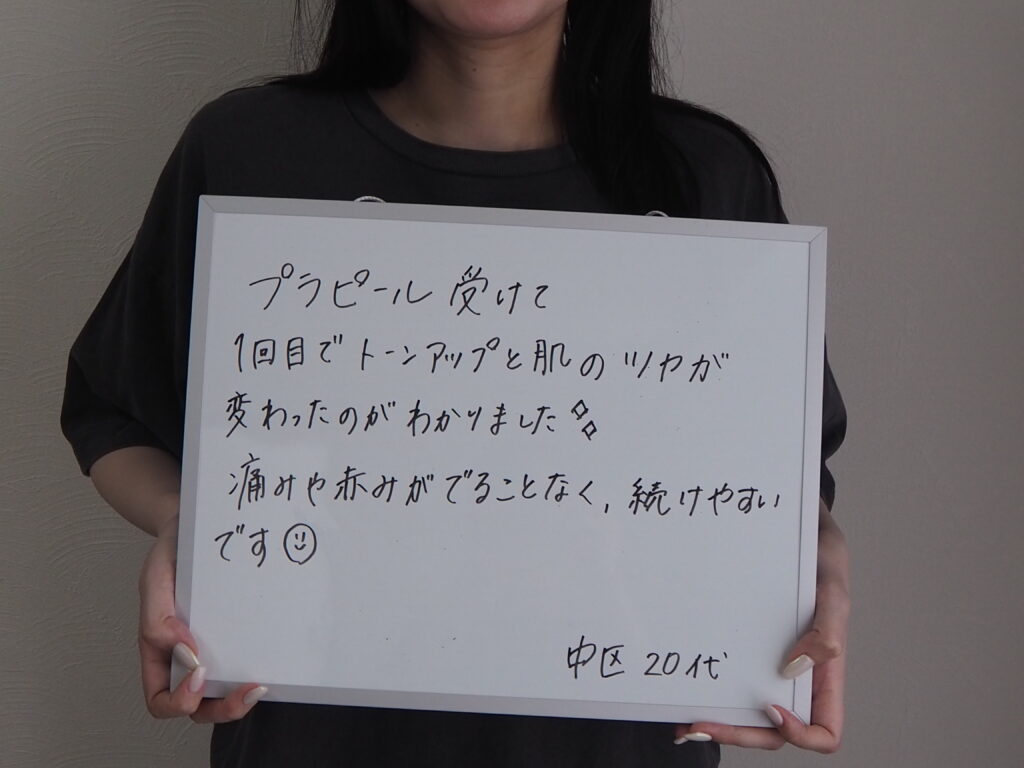 プラピール受けて
1回目でトーンアップと肌のツヤが
変わったのがわかりました
痛みや赤みがでることなく、続けやすい
です
中区 20代